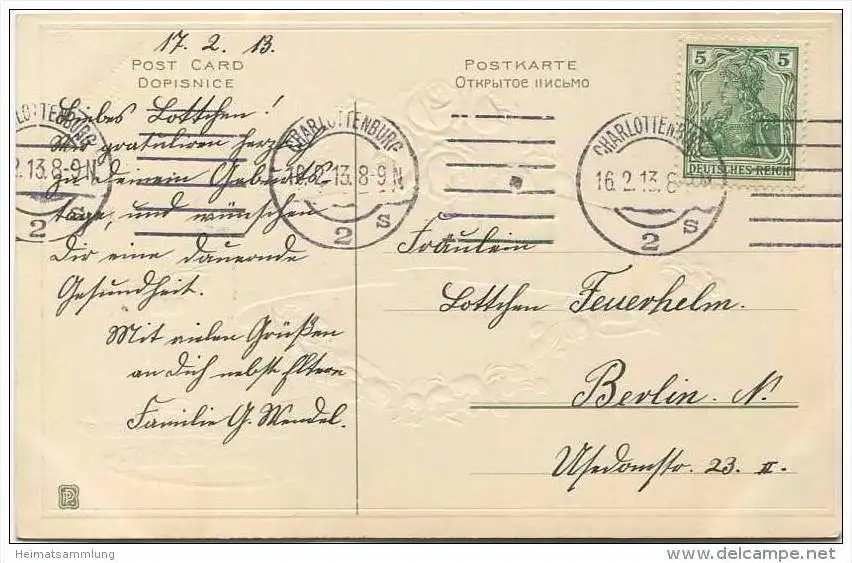 17. 2. 13.
POST CARD
DOPISNICE
POSTKARTE
Открытое письмо
5 5
DEUTSCHES REICH
CHARLOTTENBURG
2.13.8-9N
2 S
CHARLOTTENBURG
16.2.13.8-9N
2 S
CHARLOTTENBURG
16.2.13.8
2 S
Liebes Lottchen!
Wir gratulieren herzl.
zu deinem Geburts-
tage, und wünschen
Dir eine dauernde
Gesundheit.
Mit vielen Grüßen
an Dich nebst Eltern
Familie G. Wendel.
Fräulein
Lottchen Feuerhelm.
Berlin. N.
Usedomstr. 23. II.
PL
Heimatsammlung
www.delcampe.net